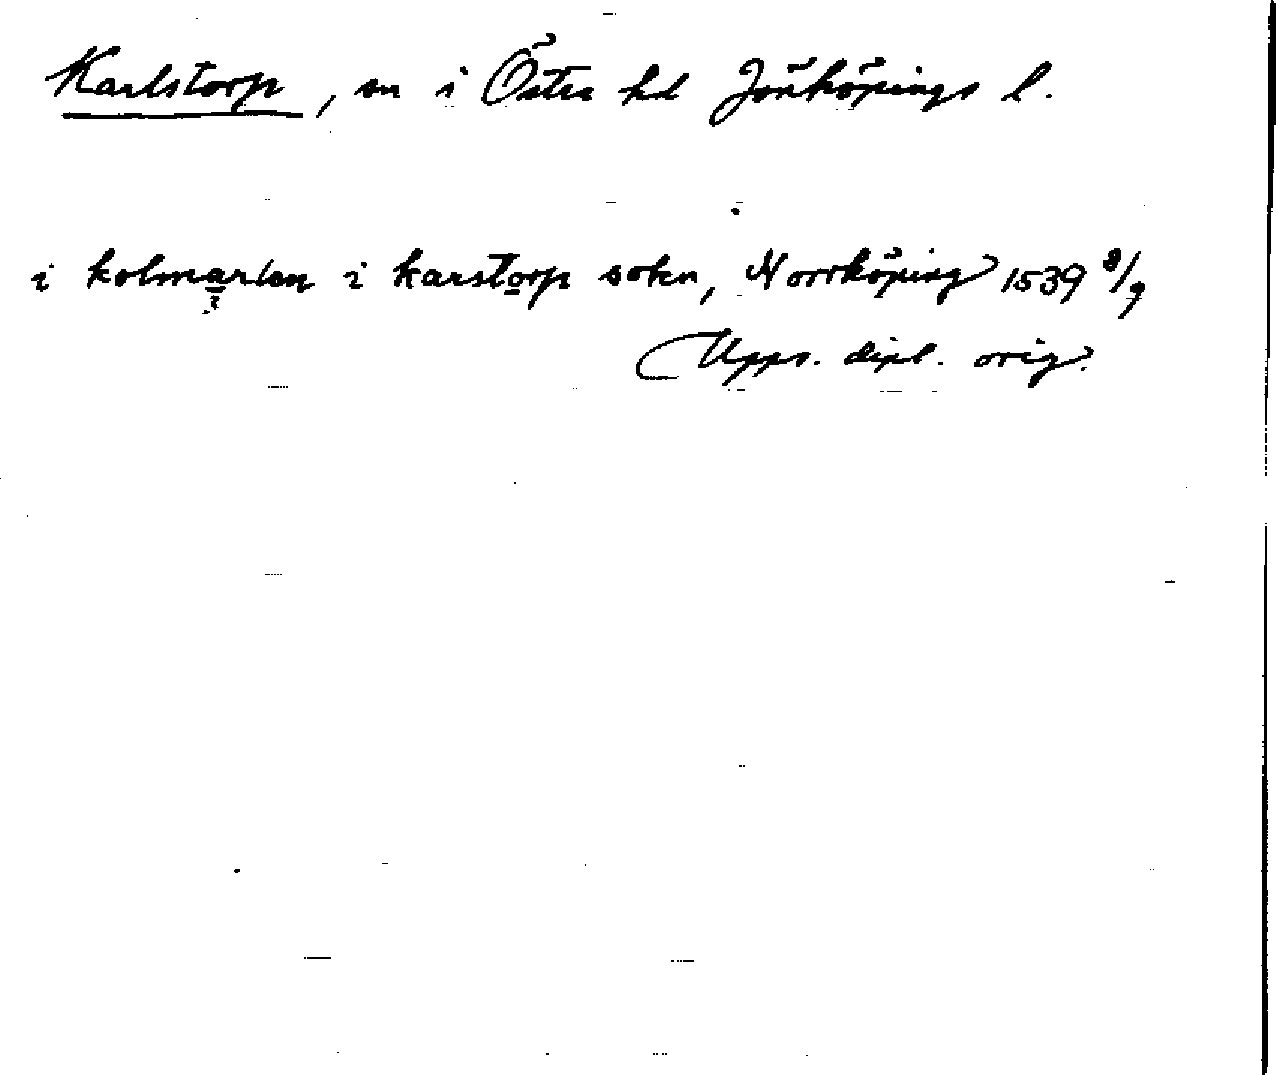 Karlstorp, sn i Östra hd Jönköpings l.
i kolmarlan i karstorp sokn, Norrköping 1539 8/9
Upps. dipl. orig.